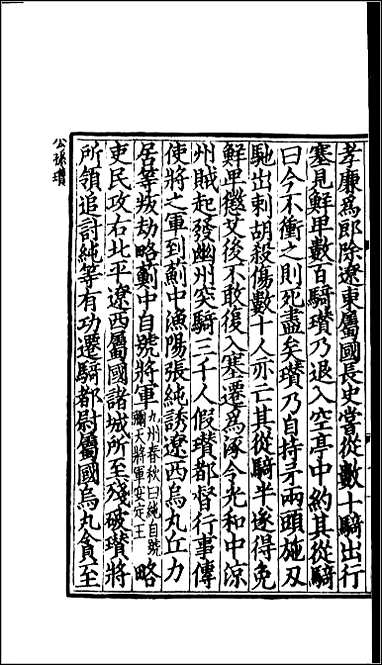 孝廉爲郎除遼東屬國長史嘗從數十騎出行
塞見鮮卑數百騎瓚乃退入空亭中約其從騎
曰今不衝之則死盡矣瓚乃自持矛兩頭施刃
馳出刺胡殺傷數十人亦亡其從騎半遂得免
鮮卑懲艾後不敢復入塞遷爲涿令光和中涼
州賊起發幽州突騎三千人假瓚都督行事傳
使將之軍到薊中漁陽張純誘遼西烏丸丘力
居等叛劫略薊中自號將軍九州春秋曰純自號彌天將軍安定王略
吏民攻右北平遼西屬國諸城所至殘破瓚將
所領追討純等有功遷騎都尉屬國烏丸貪至
公孫瓚